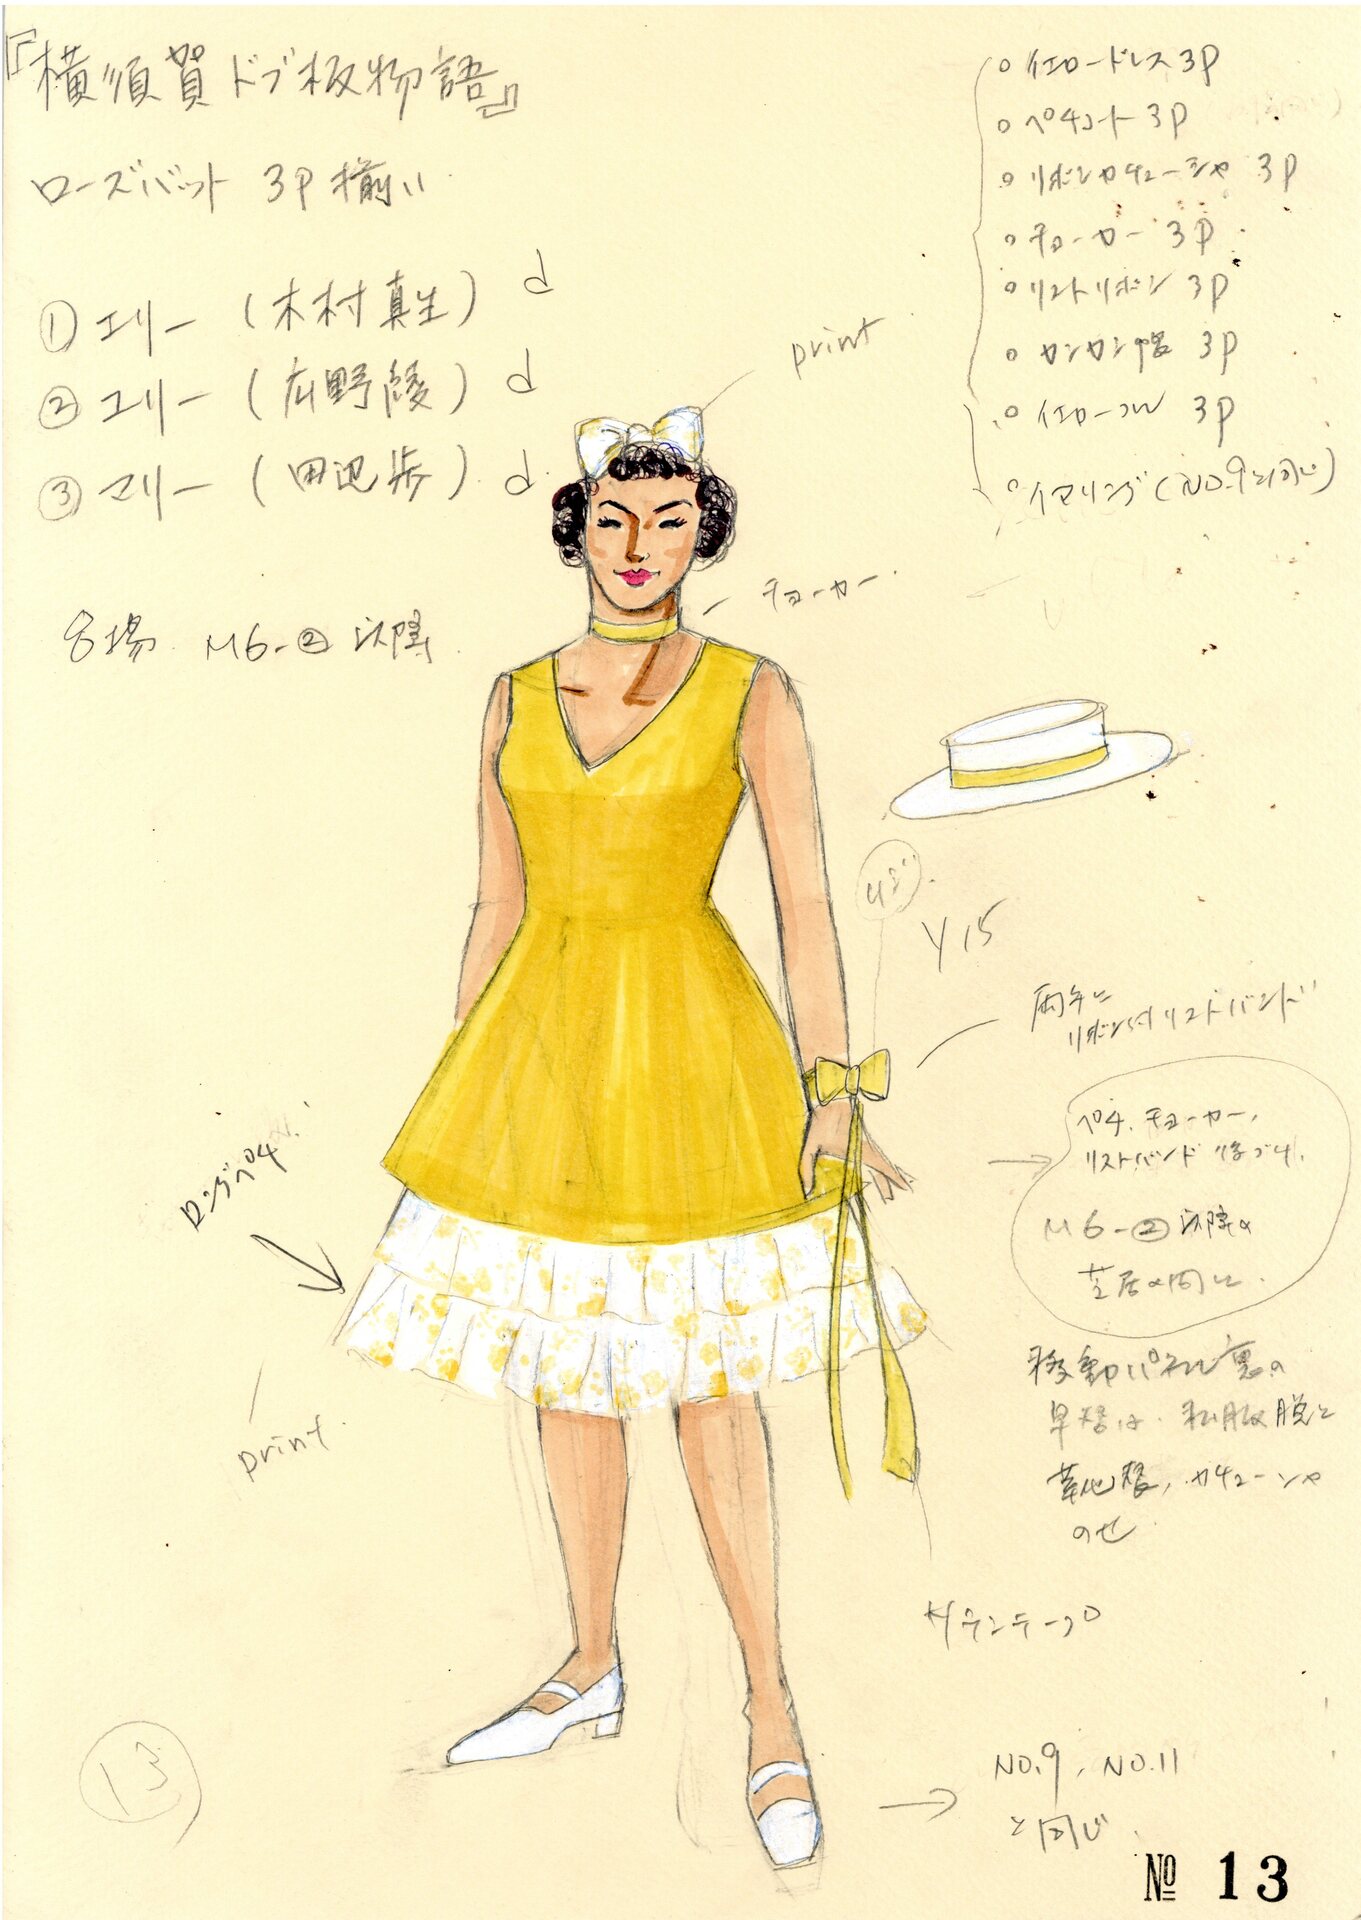 『横須賀ドブ板物語』
ローズバット 3P揃い
① エリー (木村真生) d
② ユリー (広野綾) d
③ マリー (田辺歩) d
8場 M6-② 以降
○イエロードレス 3P
○ペチコート 3P
○リボンカチューシャ 3P
○チョーカー 3P
○リストリボン 3P
○カンカン帽 3P
○イエローフル 3P
○イヤリング(NO.9と同じ)
print
チョーカー
Y15
両手に
リボン付リストバンド
ペチ、チョーカー、
リストバンド
M6-② 以降の
芝居の間に
移動パネル裏の
早替は、私服脱と
靴替、カチューシャ
のせ
ロングペチ
print
サテンテープ
NO.9、NO.11
と同じ
13
№ 13